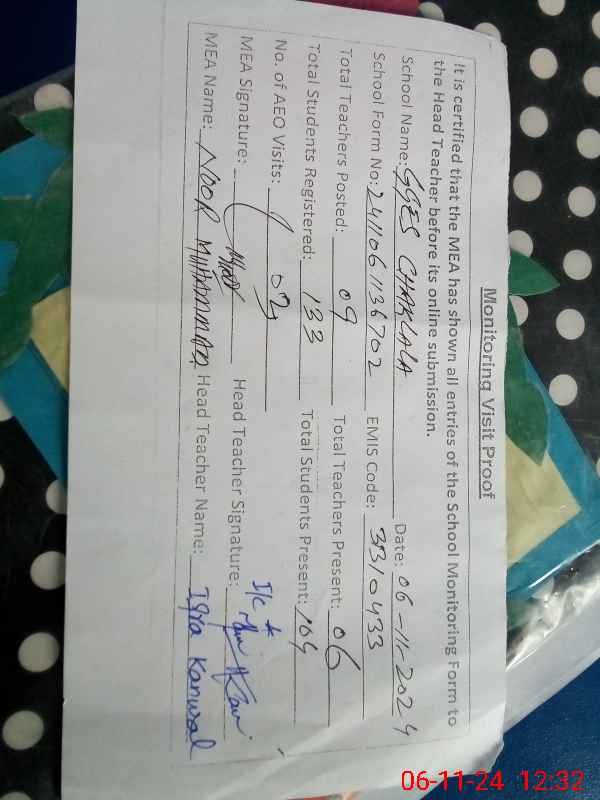 Monitoring Visit Proof
It is certified that the MEA has shown all entries of the School Monitoring Form to
the Head Teacher before its online submission.
School Name: GGES CHAKLALA Date: 06-11-2024
School Form No: 2411061136702 EMIS Code: 3310433
Total Teachers Posted: 09 Total Teachers Present: 06
Total Students Registered: 133 Total Students Present: 104
No. of AEO Visits: 02
MEA Signature: Head Teacher Signature: I/c
MEA Name: NOOR MUHAMMAD Head Teacher Name: Iqra Kanwal
06-11-24 12:32